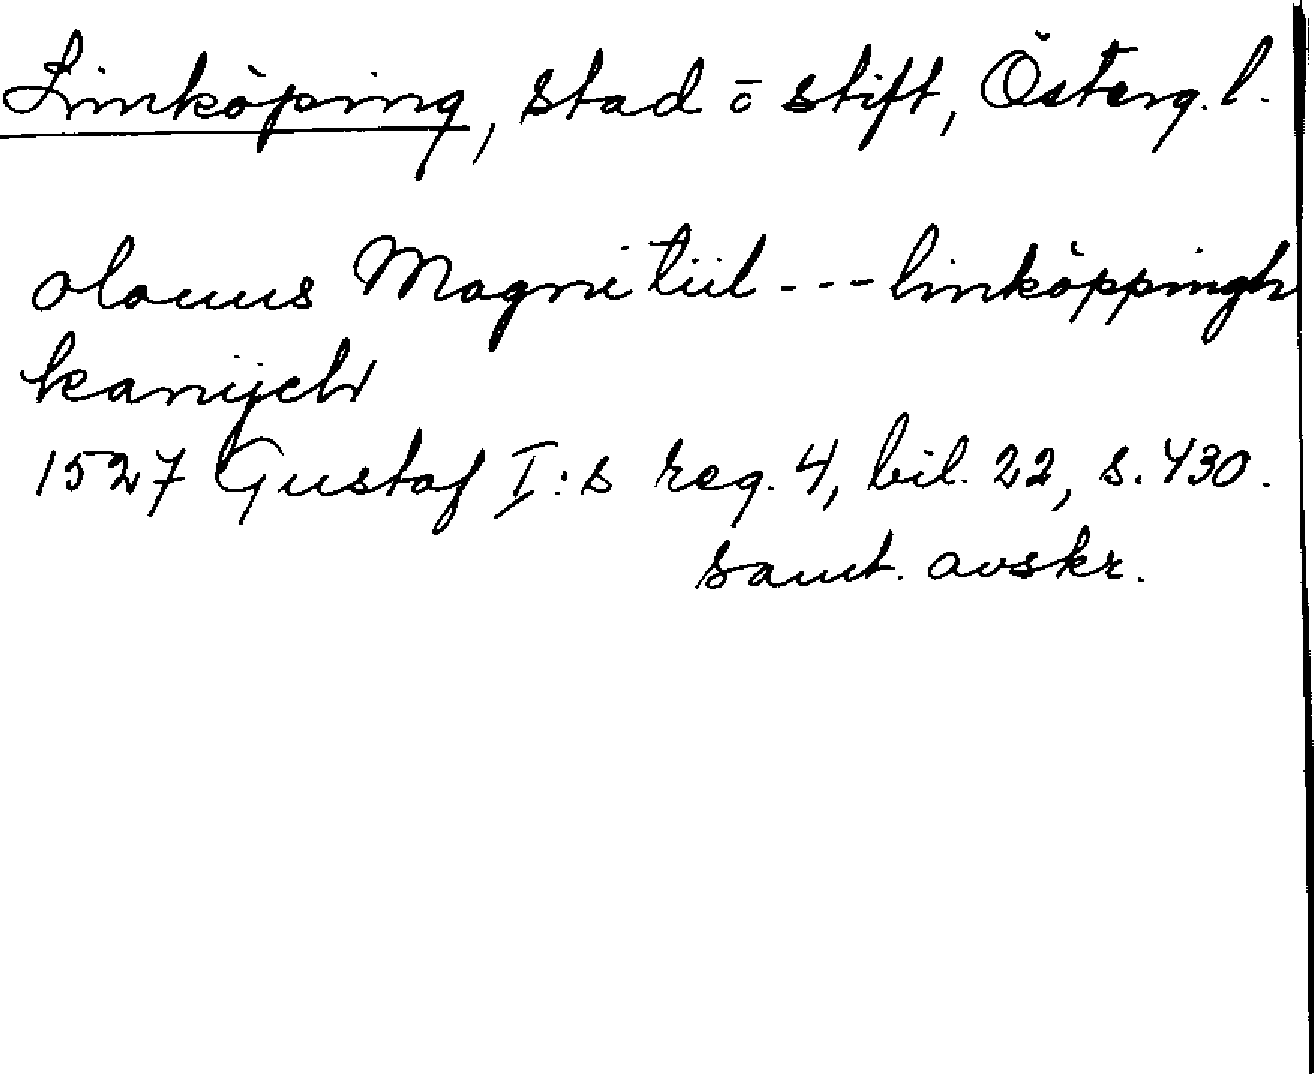 Linköping, stad o stift, Österg. l.
olauus Magni tiil --- linköppingh
kanijck
1527 Gustaf I:s reg. 4, bil. 22, s. 430.
samt. avskr.